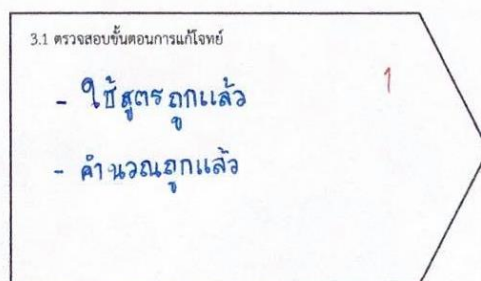 3.1 ตรวจสอบขั้นตอนการแก้โจทย์
1
- ใช้สูตรถูกแล้ว
- คำนวณถูกแล้ว